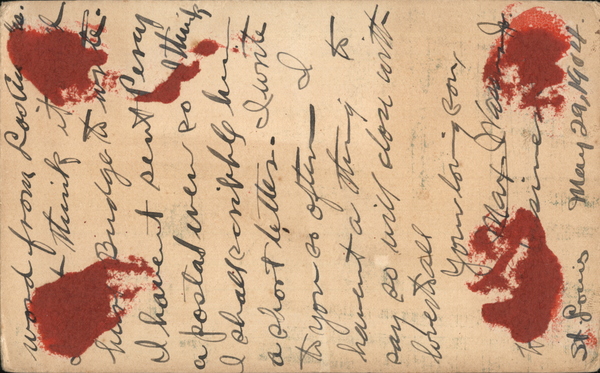 word from
think it
Budge to write.
I havent sent Percy
a postal even so I think
I shall scribble him
a short letter. I write
to you so often I
havent a thing to
say so will close with
love to all
Your loving son,
Max
St. Louis May 29, 1904.